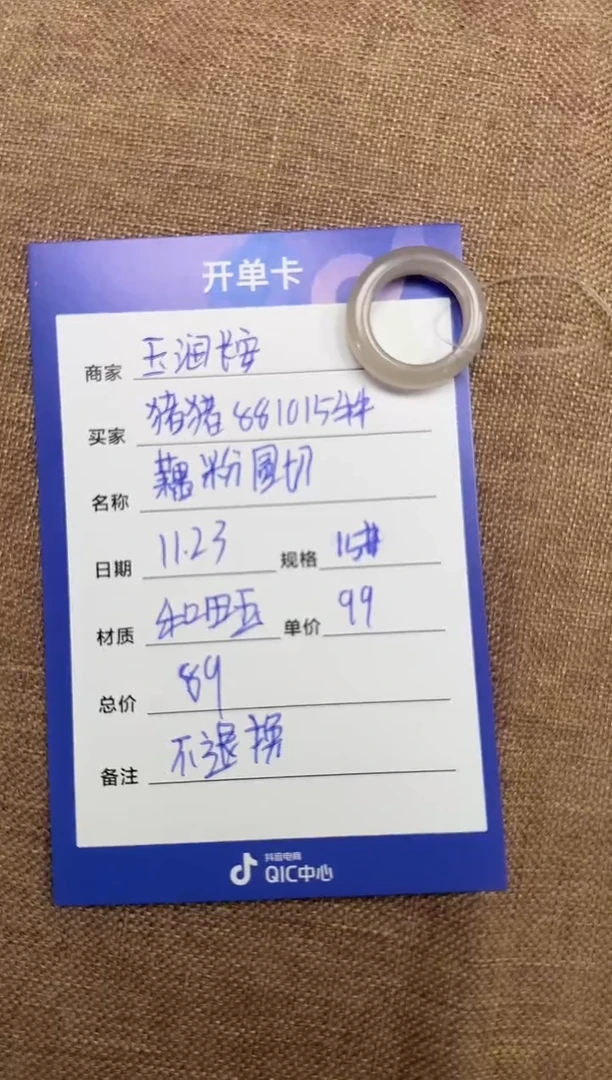 开单卡
商家 玉润长安
买家 猪猪881015牛牛
名称 藕粉圆切
日期 11.23 规格 15#
材质 和田玉 单价 99
总价 89
备注 不退换
抖音电商
QIC中心